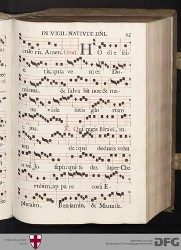 IN VIGIL. NATIVIT. DNI.
culorum, Amen. Grad. HO di e sci-
e tis, quia ve ni et Do-
minus, & salva bit nos: & ma-
ne vide bitis glo riam
e jus. Qui regis Israel, in-
ten de: qui deducis velut
o vem Jo seph: qui se des super Che-
rubim, ap pa re cora E-
phraim, Benjamin, & Manasse.
DFG